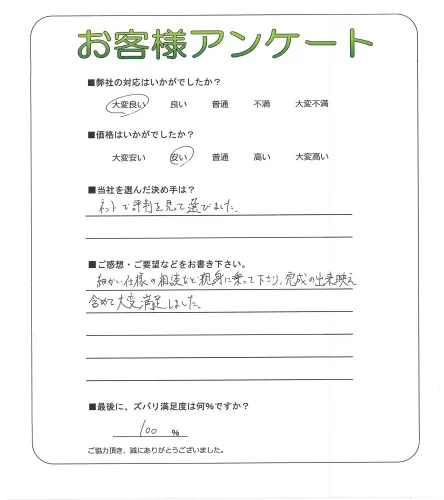 お客様アンケート
■弊社の対応はいかがでしたか？
大変良い 良い 普通 不満 大変不満
■価格はいかがでしたか？
大変安い 安い 普通 高い 大変高い
■当社を選んだ決め手は？
ネットで評判を見て選びました。
■ご感想・ご要望などをお書き下さい。
細かい仕様の相談など親身に乗って下さり、完成の出来映え
含めて大変満足しました。
■最後に、ズバリ満足度は何％ですか？
100 ％
ご協力頂き、誠にありがとうございました。